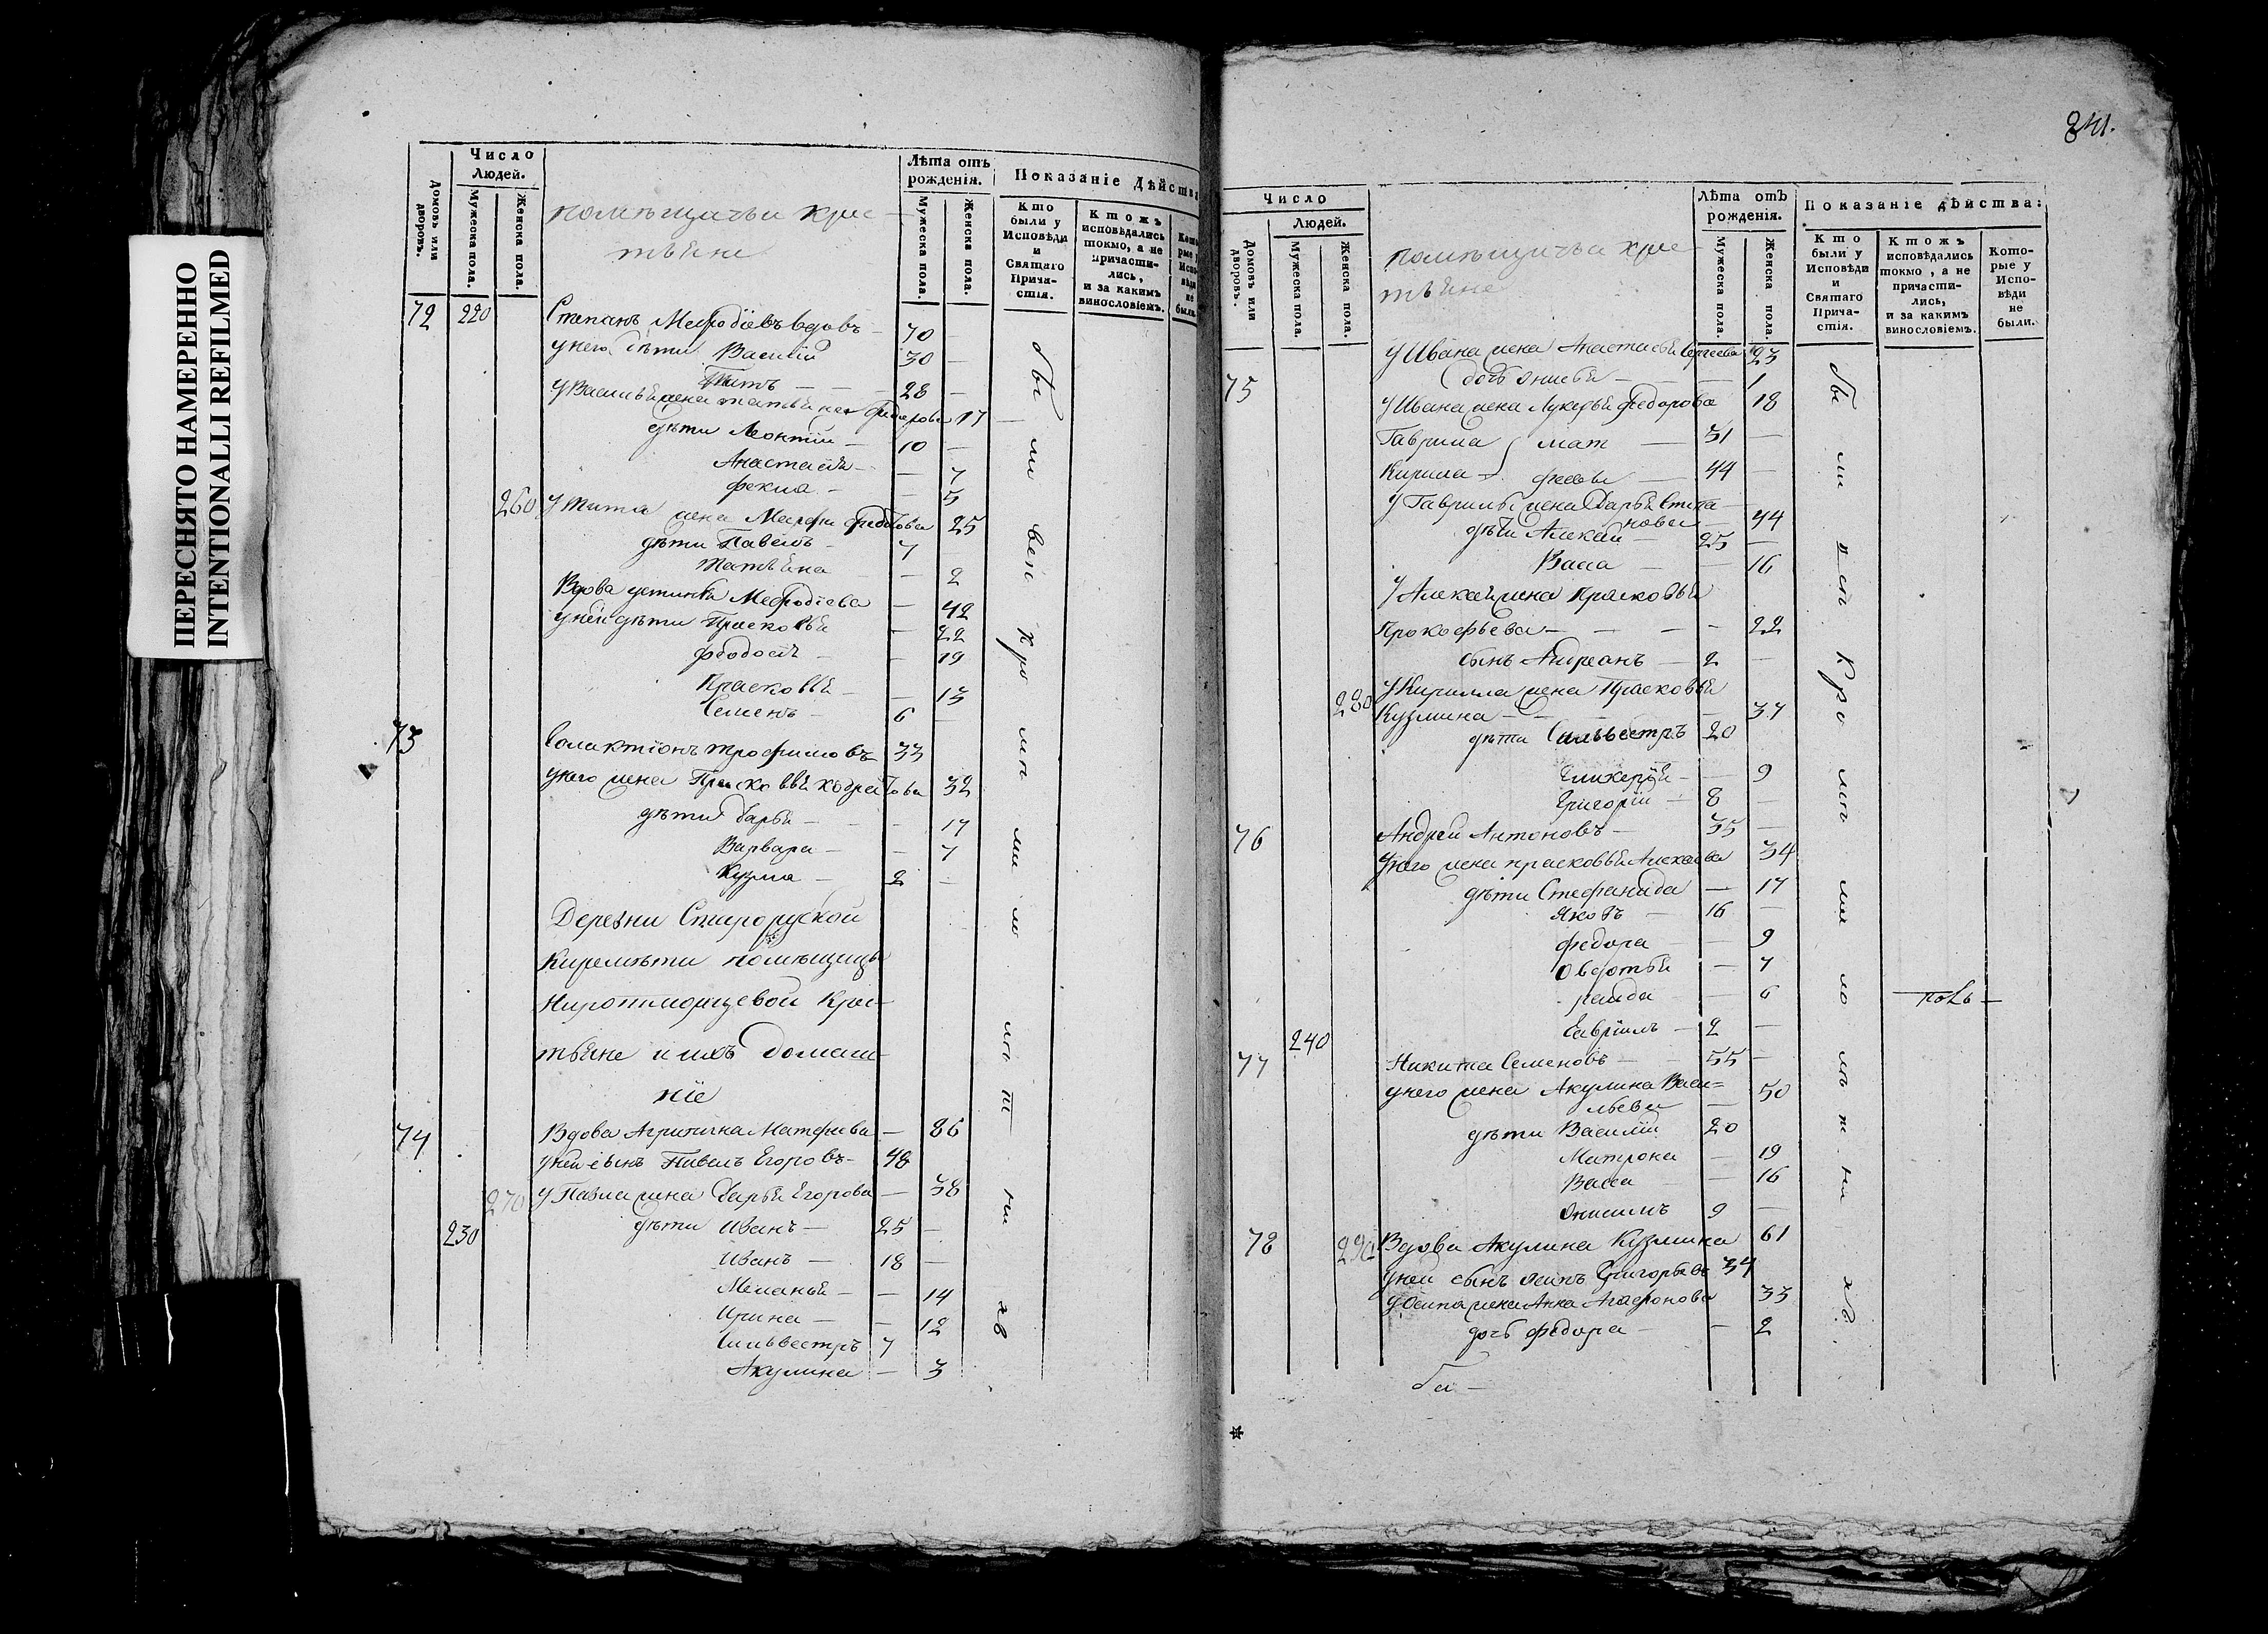 ПЕРЕСНЯТО НАМЕРЕННО
INTENTIONALLI REFILMED
Домовъ или дворовъ.
Число Людей.
Мужеска пола.
Женска пола.
помѣщичьи крес-
тьяне
Лѣта отъ рожденія.
Мужеска пола.
Женска пола.
Показаніе Дѣйства
Кто были у Исповѣди и Святаго Прича- стія.
Ктожъ исповѣдались токмо, а не причасти- лись, и за какимъ винословіемъ.
72 220 Степанъ Мефодіевъ вдовъ 70
у него дѣти Василій 30
Титъ 28
У Василья жена Татьяна 17
дѣти Леонтий 10
Анастасія 7
Фекла 5
260 У Тита жена Марфа 25
дѣти Павелъ 7
Татьяна 2
Вдова Устинья Мефодіева 42
у ней дѣти Прасковья 22
Феодосія 19
Прасковья 13
Семенъ 6
73 Галактіонъ Трофимовъ 33
у него жена Прасковья Кодратова 32
дѣти Дарья 17
Варвара 7
Кузма 2
Деревни Старо руской
Киремѣти помѣщицы
Нироптморцевой крес-
тьяне и ихъ домаш-
ніе
74 Вдова Агрипина Матфеева 86
у ней сынъ Павелъ Егоровъ 48
270 У Павла жена Дарья Егорова 38
230 дѣти Иванъ 25
Иванъ 18
Меланья 14
Ирина 12
Сильвестръ 7
Акулина 3
841.
Число Людей.
Домовъ или дворовъ.
Мужеска пола.
Женска пола.
помѣщичьи крес-
тьяне
Лѣта отъ рожденія.
Мужеска пола.
Женска пола.
Показаніе дѣйства:
Кто были у Исповѣди и Святаго Прича- стія.
Ктожъ исповѣдались токмо, а не причасти- лись, и за какимъ винословіемъ.
Кото- рые у Испо- вѣди не были.
У Ивана жена Анастасья Сергеева 23
дочь 1
75 У Ивана жена Лукерья Федорова 18
Гаврила мат 31
Кирила феевы 44
У Гаврилы жена Дарья Степа-
нова 44
дѣти Алексѣй 25
Васса 16
У Алексѣя жена Прасковья
Прокофьева 22
сынъ Андреанъ 2
280 У Кирилла жена Прасковья
Кузмина 37
дѣти Сильвестръ 20
Гликерія 9
Григорій 8
76 Андрей Антоновъ 35
у него жена Прасковья Алексѣева 34
дѣти Стефанида 17
Яковъ 16
Федора 9
Овдотья 7
6
240 Гаврилъ 2
77 Никита Семеновъ 55
у него жена Акулина Васи=
льева 50
дѣти Василій 20
Матрона 19
Васса 16
Онисимъ 9
78 290 Вдова Акулина Кузмина 61
у ней сынъ Осипъ Григорьевъ 34
У Осипа жена Анна Агафонова 33
дочь Федора 2